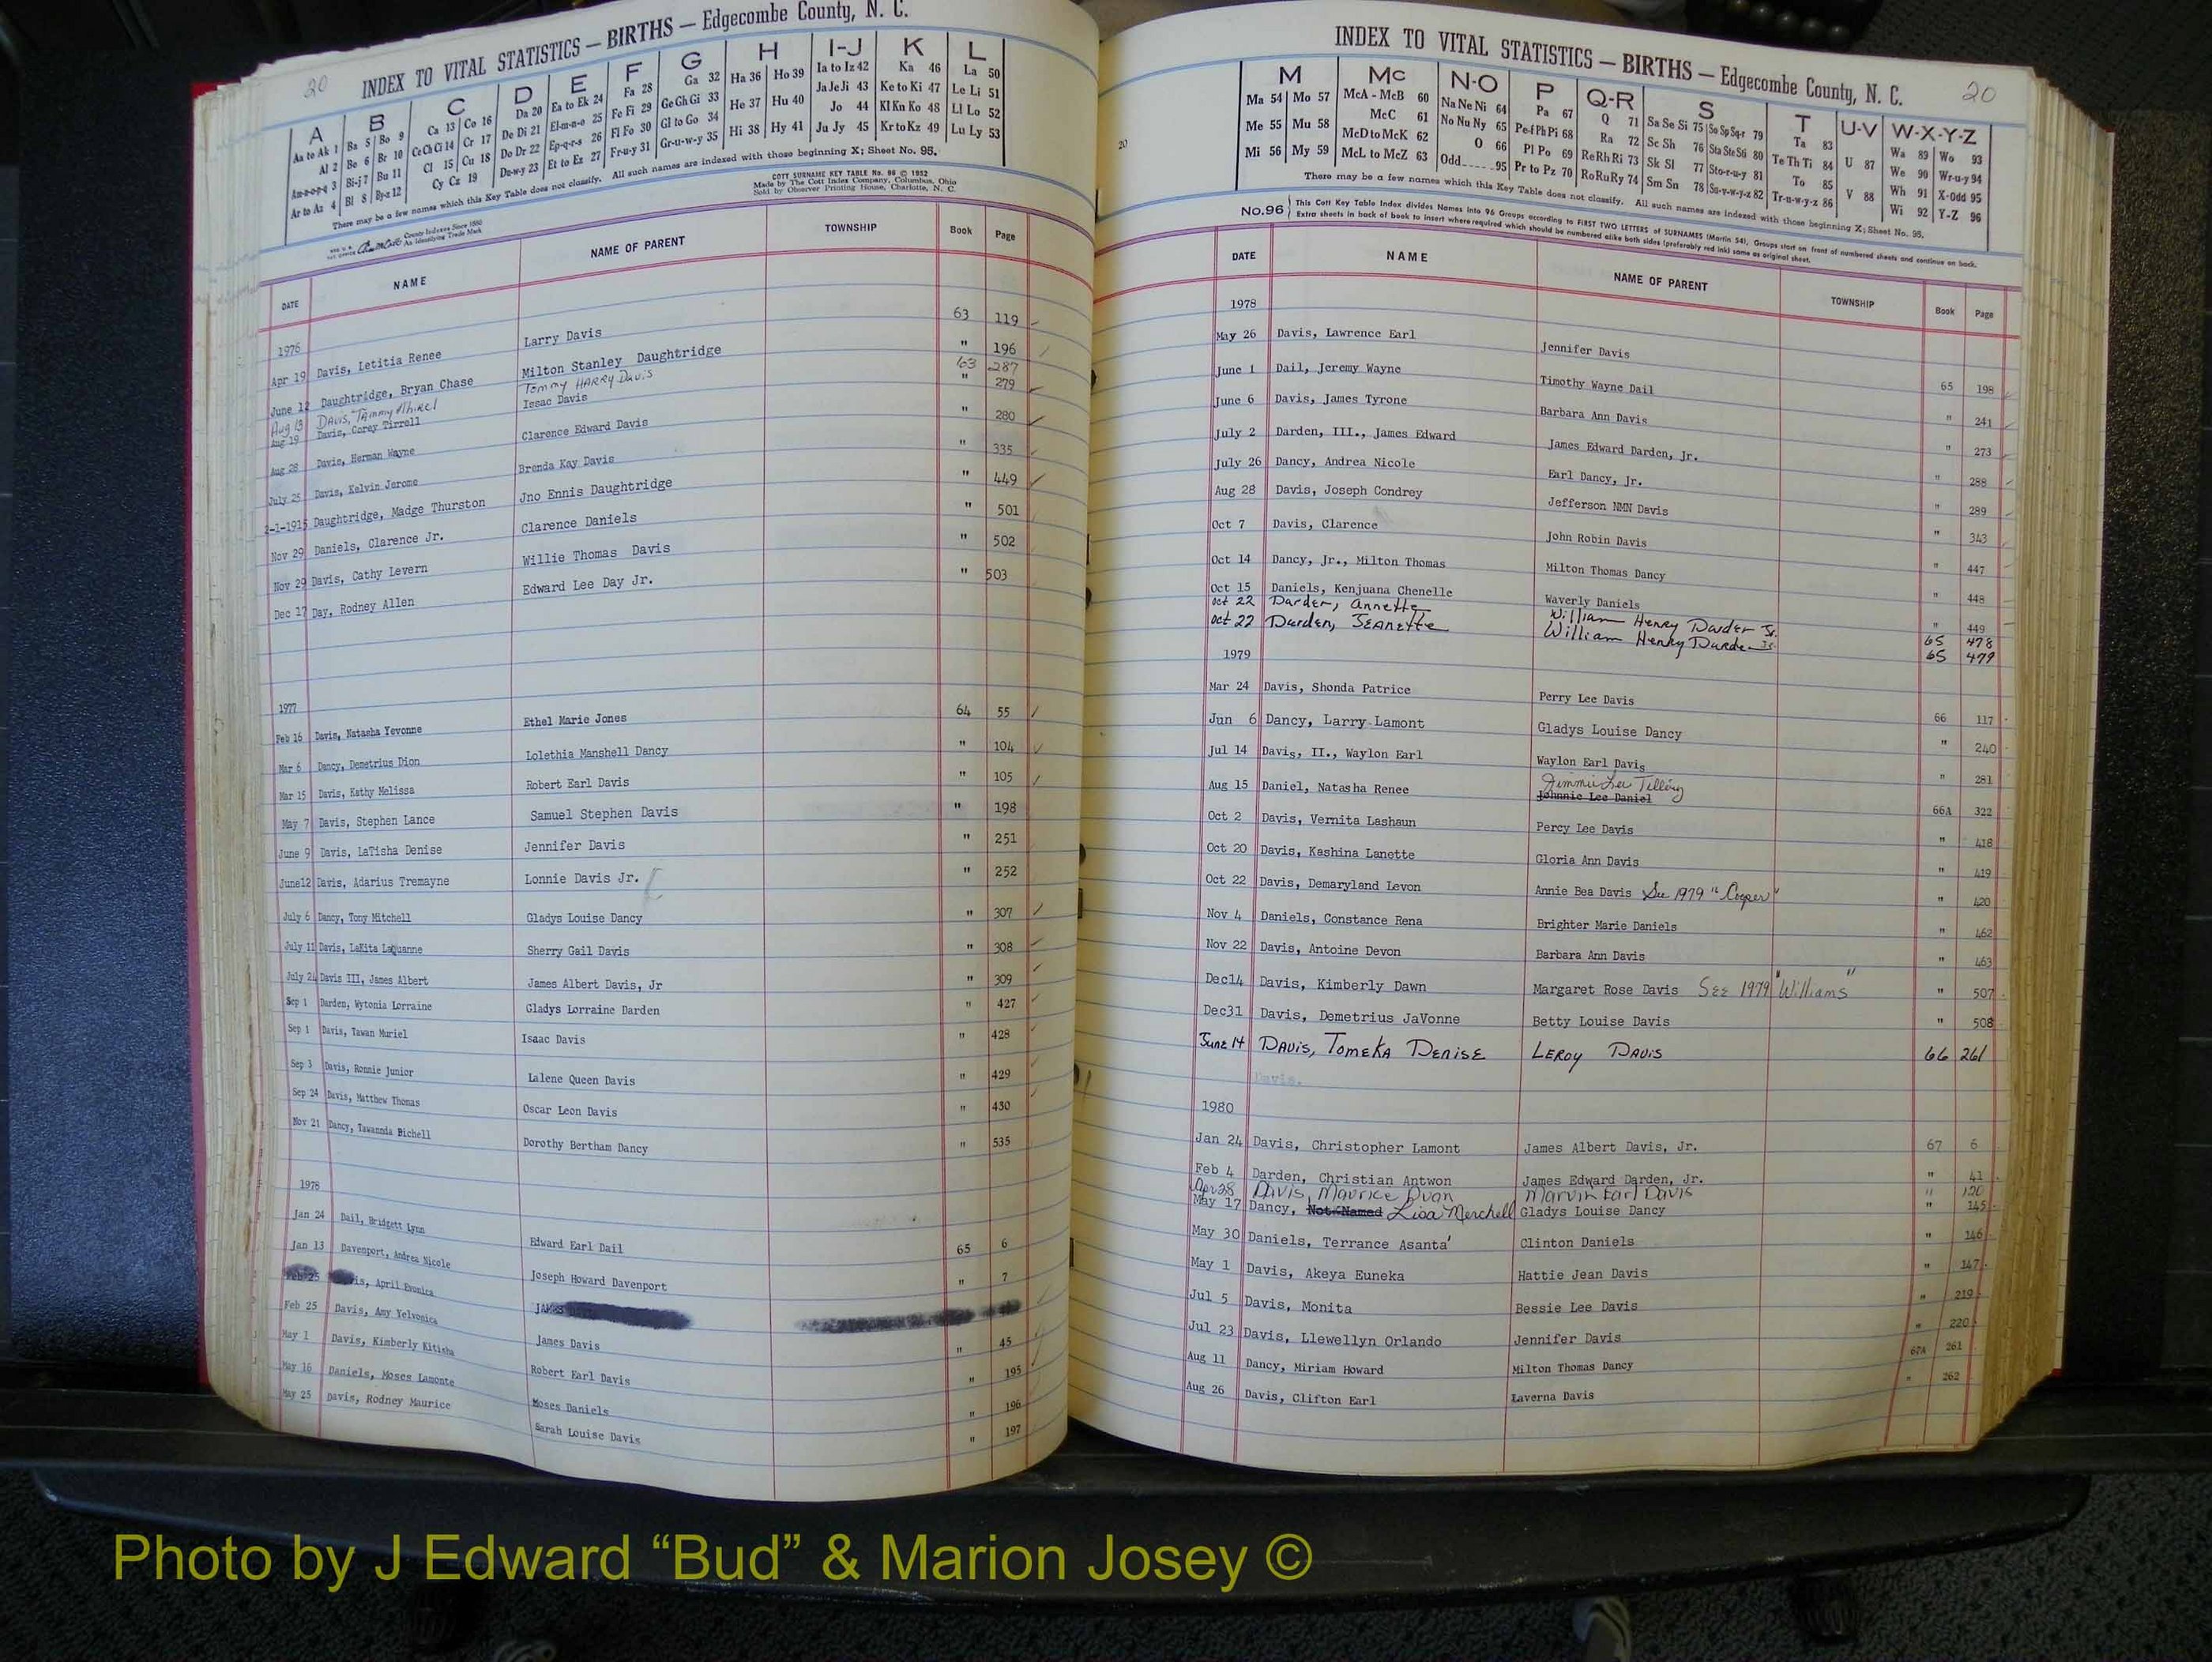 20
INDEX TO VITAL STATISTICS — BIRTHS — Edgecombe County, N. C.
A B C D E F G H I-J K L
Aa to Ak 1 Ba 5 Bo 9 Ca 13 Co 16 Da 20 Ea to Ek 24 Fa 28 Ga 32 Ha 36 Ho 39 Ia to Iz 42 Ka 46 La 50
Al 2 Be 6 Br 10 Ce Ch Ci 14 Cr 17 De Di 21 El-m-n-o 25 Fe Fi 29 Ge Gh Gi 33 He 37 Hu 40 Ja Je Ji 43 Ke to Ki 47 Le Li 51
Am-n-o-p-q 3 Bi-j 7 Bu 11 Cl 15 Cu 18 Do Dr 22 Ep-q-r-s 26 Fl Fo 30 Gl to Go 34 Hi 38 Hy 41 Jo 44 Kl Kn Ko 48 Ll Lo 52
Ar to Az 4 Bl 8 By-z 12 Cy Cz 19 Du-w-y 23 Et to Ez 27 Fr-u-y 31 Gr-u-w-y 35 Ju Jy 45 Kr to Kz 49 Lu Ly 53
There may be a few names which this Key Table does not classify. All such names are indexed with those beginning X; Sheet No. 95.
COTT SURNAME KEY TABLE No. 96 © 1952
Made by The Cott Index Company, Columbus, Ohio
Sold by Observer Printing House, Charlotte, N. C.
County Indexes Since 1888
As Identifying Trade Mark
DATE NAME NAME OF PARENT TOWNSHIP Book Page
1976
Apr 19 Davis, Letitia Renee Larry Davis 63 119
June 12 Daughtridge, Bryan Chase Milton Stanley Daughtridge " 196
Aug 13 DAVIS, Tammy Tommy HARRY Davis 63 287
Aug 19 Davis, Corey Tirrell Isaac Davis " 279
Aug 28 Davis, Herman Wayne Clarence Edward Davis " 280
July 25 Davis, Kelvin Jerome Brenda Kay Davis " 335
2-1-1915 Daughtridge, Madge Thurston Jno Ennis Daughtridge " 449
Nov 29 Daniels, Clarence Jr. Clarence Daniels " 501
Nov 29 Davis, Cathy Levern Willie Thomas Davis " 502
Dec 17 Day, Rodney Allen Edward Lee Day Jr. " 503
1977
Feb 16 Davis, Natasha Yevonne Ethel Marie Jones 64 55
Mar 6 Dancy, Demetrius Dion Lolethia Manshell Dancy " 104
Mar 15 Davis, Kathy Melissa Robert Earl Davis " 105
May 7 Davis, Stephen Lance Samuel Stephen Davis " 198
June 9 Davis, LaTisha Denise Jennifer Davis " 251
June12 Davis, Adarius Tremayne Lonnie Davis Jr. " 252
July 6 Dancy, Tony Mitchell Gladys Louise Dancy " 307
July 11 Davis, LaKita LaQuanne Sherry Gail Davis " 308
July 24 Davis III, James Albert James Albert Davis, Jr " 309
Sep 1 Darden, Wytonia Lorraine Gladys Lorraine Darden " 427
Sep 1 Davis, Tawan Muriel Isaac Davis " 428
Sep 3 Davis, Ronnie Junior Lalene Queen Davis " 429
Sep 24 Davis, Matthew Thomas Oscar Leon Davis " 430
Nov 21 Dancy, Tawannda Bichell Dorothy Bertham Dancy " 535
1978
Jan 24 Dail, Bridgett Lynn Edward Earl Dail 65 6
Jan 13 Davenport, Andrea Nicole Joseph Howard Davenport " 7
Feb 25 Davis, April
Feb 25 Davis, Amy Yelvonica James Davis " 45
May 1 Davis, Kimberly Kitisha Robert Earl Davis " 195
May 16 Daniels, Moses Lamonte Moses Daniels " 196
May 25 Davis, Rodney Maurice Sarah Louise Davis " 197
20
INDEX TO VITAL STATISTICS — BIRTHS — Edgecombe County, N. C. 20
M Mc N-O P Q-R S T U-V W-X-Y-Z
Ma 54 Mo 57 McA - McB 60 Na Ne Ni 64 Pa 67 Q 71 Sa Se Si 75 So Sp Sq-r 79 Ta 83 U 87 Wa 89 Wo 93
Me 55 Mu 58 McC 61 No Nu Ny 65 Pe-f Ph Pi 68 Ra 72 Sc Sh 76 Sta Ste Sti 80 Te Th Ti 84 V 88 We 90 Wr-u-y 94
Mi 56 My 59 McD to McK 62 O 66 Pl Po 69 Re Rh Ri 73 Sk Sl 77 Sto-r-u-y 81 To 85 Wh 91 X-odd 95
McL to McZ 63 Odd 95 Pr to Pz 70 Ro Ru Ry 74 Sm Sn 78 Su-v-w-y-z 82 Tr-u-w-y-z 86 Wi 92 Y-Z 96
There may be a few names which this Key Table does not classify. All such names are indexed with those beginning X; Sheet No. 95.
No.96 This Cott Key Table Index divides Names into 96 Groups according to FIRST TWO LETTERS of SURNAMES (Martin 54). Groups start on front of numbered sheets and continue on back.
Extra sheets in back of book to insert where required which should be numbered alike both sides (preferably red ink) same as original sheet.
DATE NAME NAME OF PARENT TOWNSHIP Book Page
1978
May 26 Davis, Lawrence Earl Jennifer Davis 65 198
June 1 Dail, Jeremy Wayne Timothy Wayne Dail " 241
June 6 Davis, James Tyrone Barbara Ann Davis " 273
July 2 Darden, III., James Edward James Edward Darden, Jr. " 288
July 26 Dancy, Andrea Nicole Earl Dancy, Jr. " 289
Aug 28 Davis, Joseph Condrey Jefferson NMN Davis " 343
Oct 7 Davis, Clarence John Robin Davis " 447
Oct 14 Dancy, Jr., Milton Thomas Milton Thomas Dancy " 448
Oct 15 Daniels, Kenjuana Chenelle Waverly Daniels " 449
oct 22 Darden, Annette William Henry Darden Jr. 65 478
oct 22 Darden, JEANETTE William Henry Darden Jr. 65 479
1979
Mar 24 Davis, Shonda Patrice Perry Lee Davis 66 117
Jun 6 Dancy, Larry Lamont Gladys Louise Dancy " 240
Jul 14 Davis, II., Waylon Earl Waylon Earl Davis " 281
Aug 15 Daniel, Natasha Renee Jimmie Lee Tillery Johnnie Lee Daniel 66A 322
Oct 2 Davis, Vernita Lashaun Percy Lee Davis " 418
Oct 20 Davis, Kashina Lanette Gloria Ann Davis " 419
Oct 22 Davis, Demaryland Levon Annie Bea Davis See 1979 "Cooper" " 420
Nov 4 Daniels, Constance Rena Brighter Marie Daniels " 462
Nov 22 Davis, Antoine Devon Barbara Ann Davis " 463
Dec14 Davis, Kimberly Dawn Margaret Rose Davis SEE 1979 "Williams" " 507
Dec31 Davis, Demetrius JaVonne Betty Louise Davis " 508
June 14 DAVIS, TOMEKA DENISE LEROY DAVIS 66 261
Davis.
1980
Jan 24 Davis, Christopher Lamont James Albert Davis, Jr. 67 6
Feb 4 Darden, Christian Antwon James Edward Darden, Jr. " 41
Apr 28 Davis, Maurice Duan Marvin Earl Davis " 120
May 17 Dancy, Not Named Lisa Merchell Gladys Louise Dancy " 145
May 30 Daniels, Terrance Asanta' Clinton Daniels " 146
May 1 Davis, Akeya Euneka Hattie Jean Davis " 147
Jul 5 Davis, Monita Bessie Lee Davis " 219
Jul 23 Davis, Llewellyn Orlando Jennifer Davis " 220
Aug 11 Dancy, Miriam Howard Milton Thomas Dancy 67A 261
Aug 26 Davis, Clifton Earl Laverna Davis " 262
Photo by J Edward “Bud” & Marion Josey ©